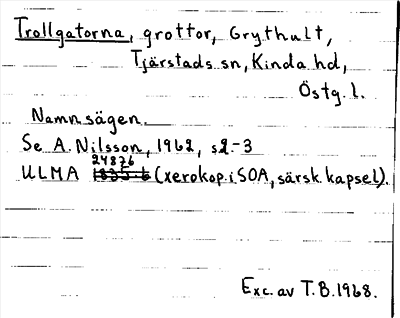 Trollgatorna, grottor, Grythult,
Tjärstads sn, Kinda hd,
Östg. l.
Namnsägen.
Se A. Nilsson, 1962, s2-3
24876
ULMA (xerokop. i SOA, särsk. kapsel).
Exc. av T.B. 1968.